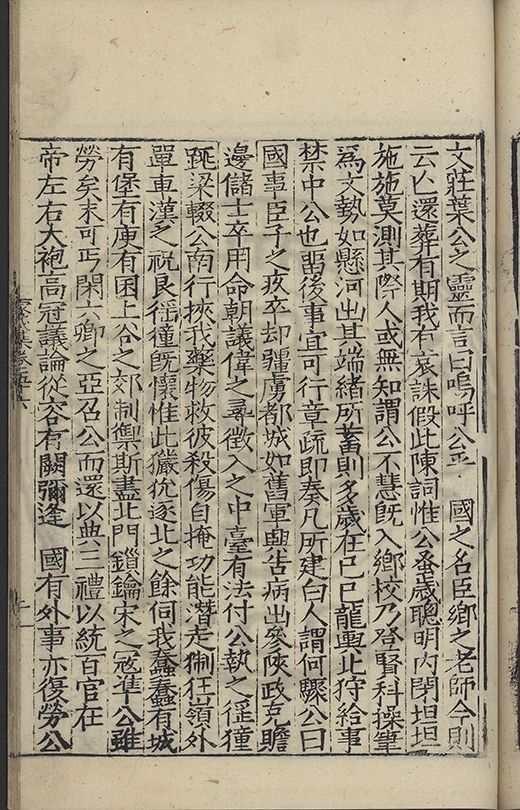 文莊葉公之靈而言曰嗚呼公乎 國之名臣鄉之老師今則
云亾還葬有期我有哀誄假此陳詞惟公蚤歲聰明内閉坦坦
施施莫測其際人或無知謂公不慧旣入鄉校乃登賢科操筆
爲文勢如懸河出其端緒所蓄則多歲在己巳龍輿北狩給事
禁中公也畱後事宜可行章疏即奏凡所建白人謂何驟公曰
國事臣子之疚卒却疆虜都城如舊軍興告病出參陝政克贍
邊儲士卒用命朝議偉之尋徵入之中臺有法付公執之徭獞
跳梁輟公南行挾我藥物救彼殺傷自掩功能潛走猘狂嶺外
單車漢之祝良徭獞旣懷惟此玁狁逐北之餘伺我蠢蠢有城
有堡有庾有囷上谷之郊制禦斯盡北門鎖鑰宋之寇準公雖
勞矣未可丐閑六卿之亞召公而還以典三禮以統百官在
帝左右大袍高冠議論從容有闕彌逢 國有外事亦復勞公